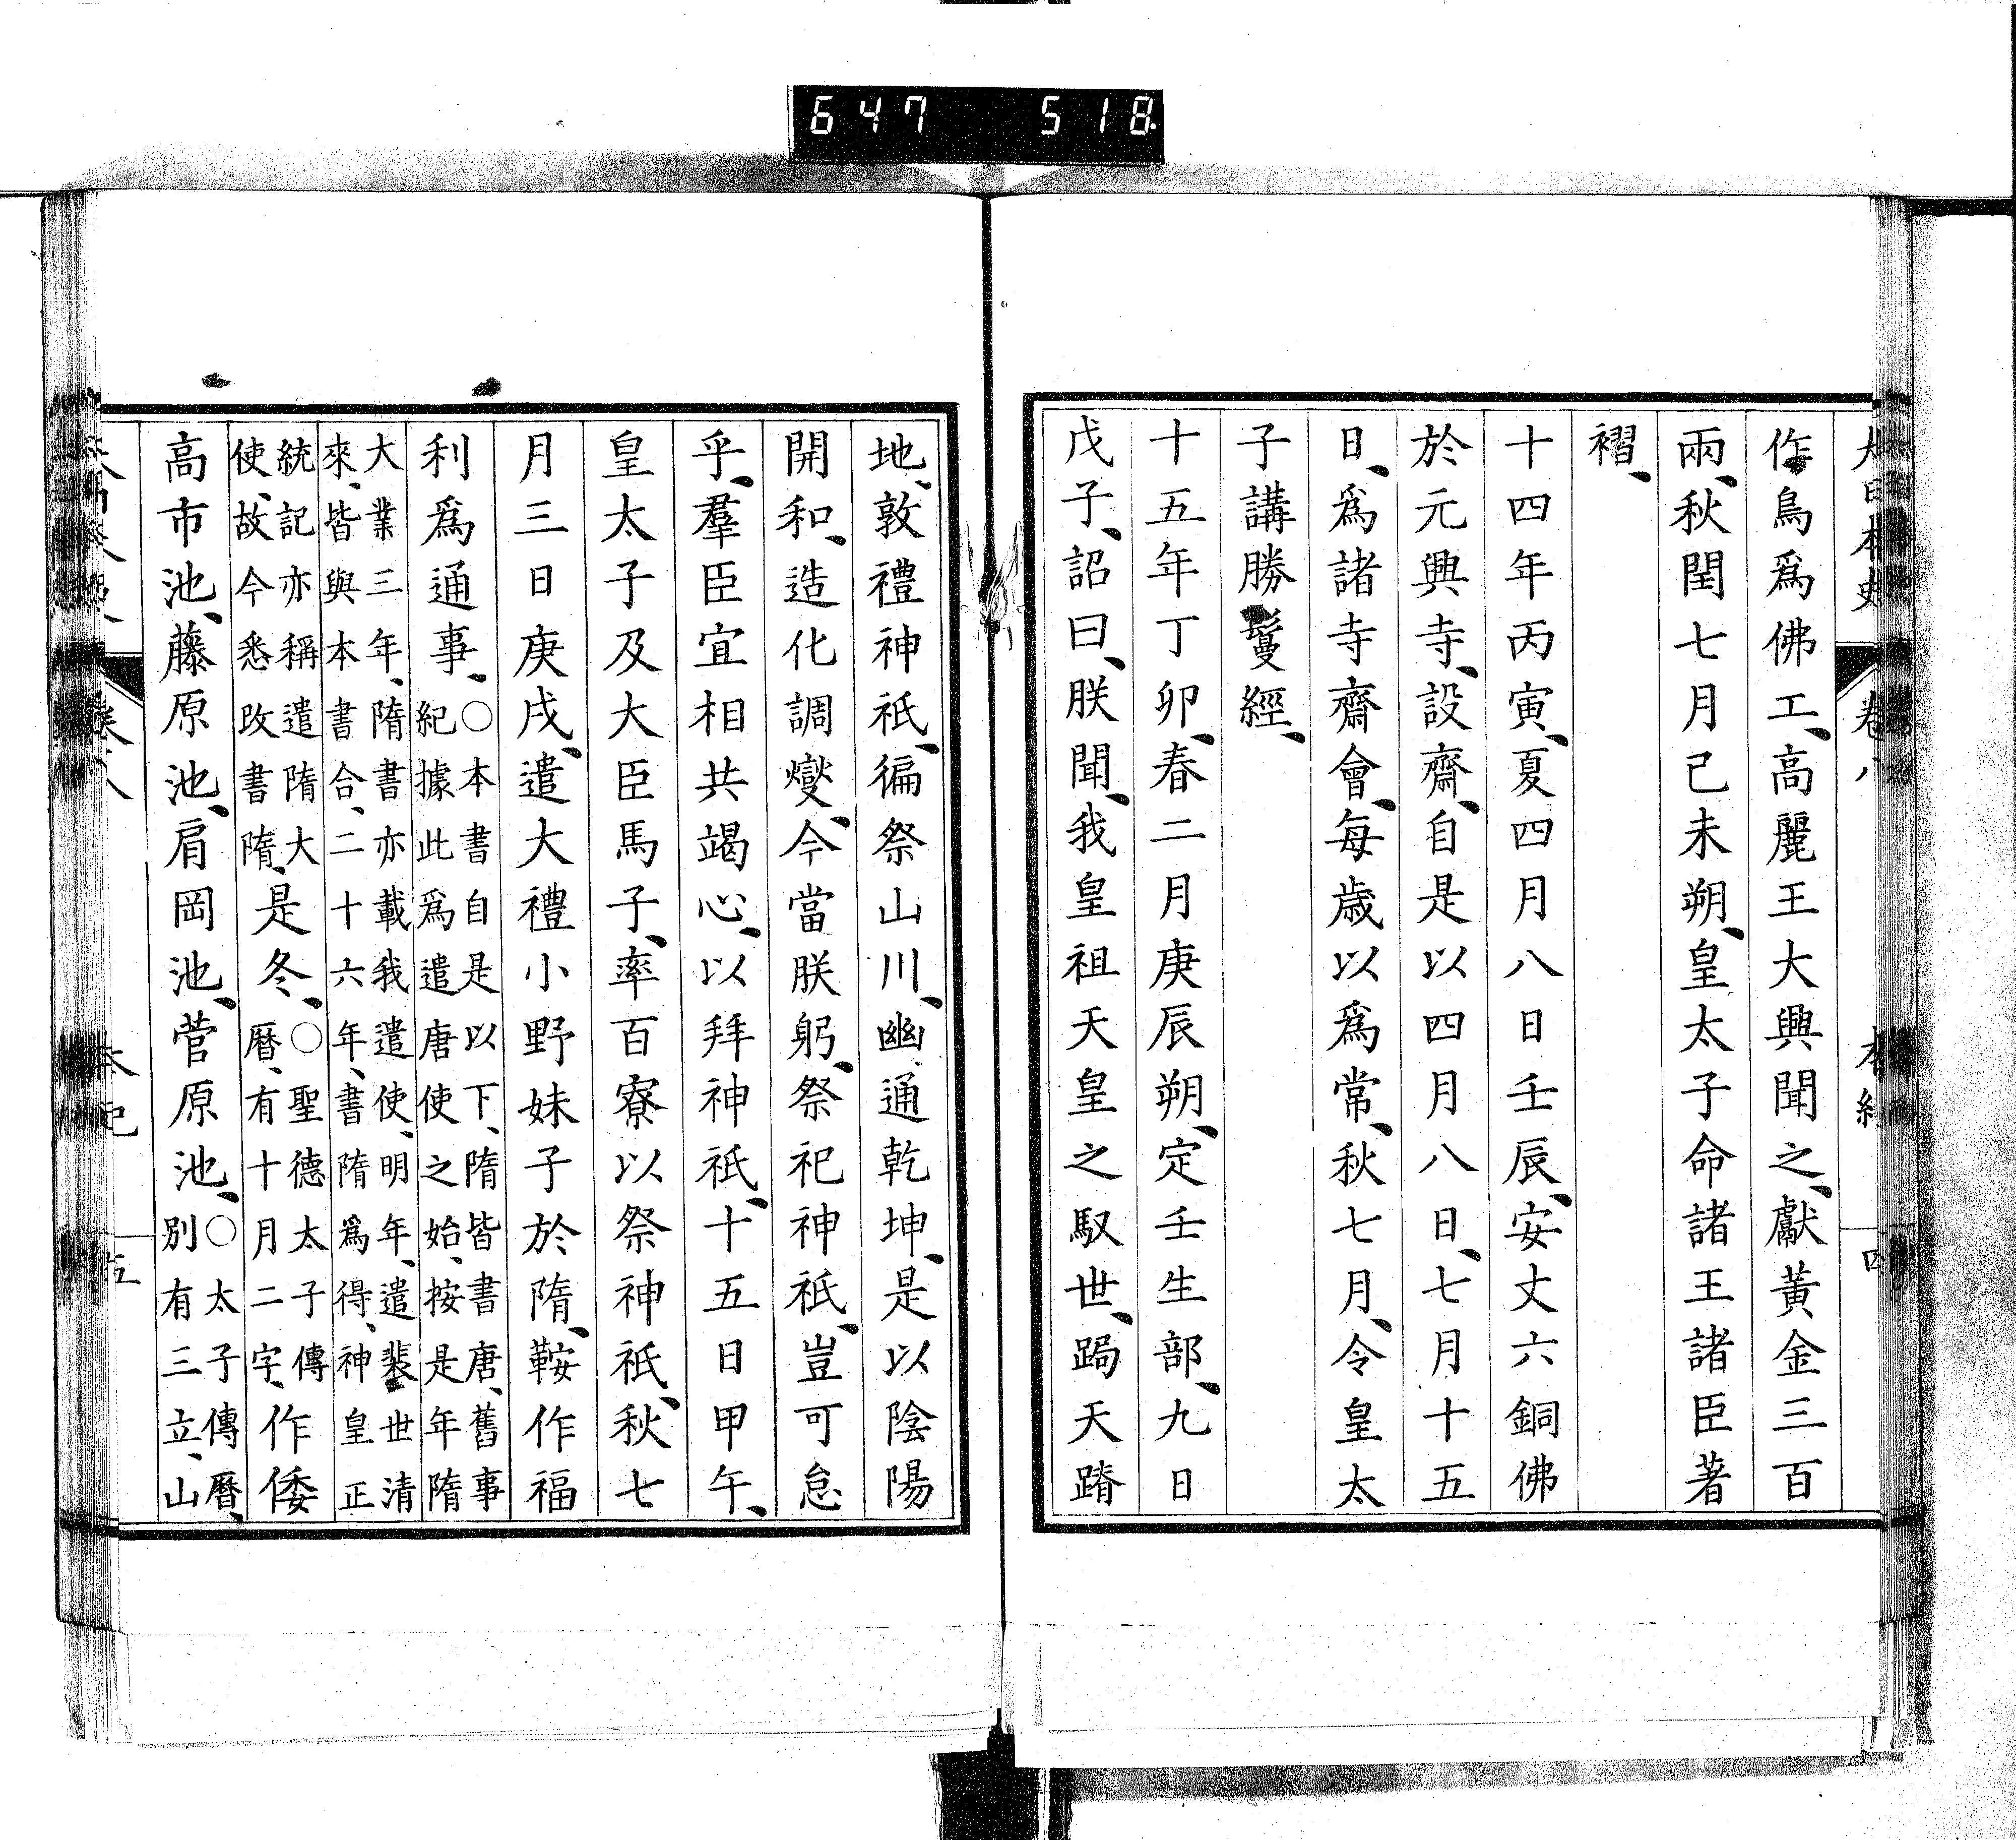 647 518
大日本史 卷八 本紀 四
作鳥爲佛工、高麗王大興聞之、獻黃金三百
兩、秋閏七月己未朔、皇太子命諸王諸臣著
褶、
十四年丙寅、夏四月八日壬辰、安丈六銅佛
於元興寺、設齋、自是以四月八日、七月十五
日、爲諸寺齋會、每歲以爲常、秋七月、令皇太
子講勝鬘經、
十五年丁卯、春二月庚辰朔、定壬生部、九日
戊子、詔曰、朕聞、我皇祖天皇之馭世、跼天蹐
地、敦禮神祇、徧祭山川、幽通乾坤、是以陰陽
開和、造化調燮、今當朕躬、祭祀神祇、豈可怠
乎、羣臣宜相共竭心、以拜神祇、十五日甲午、
皇太子及大臣馬子、率百寮以祭神祇、秋七
月三日庚戌、遣大禮小野妹子於隋、鞍作福
利爲通事、○本書自是以下、隋皆書唐、舊事
紀據此爲遣唐使之始、按是年隋
大業三年、隋書亦載我遣使、明年、遣裴世清
來、皆與本書合、二十六年、書隋爲得、神皇正
統記亦稱遣隋大
使、故今悉改書隋、是冬、○聖德太子傳
曆、有十月二字、作倭
高市池、藤原池、肩岡池、菅原池、○太子傳曆、
別有三立、山
本紀 五